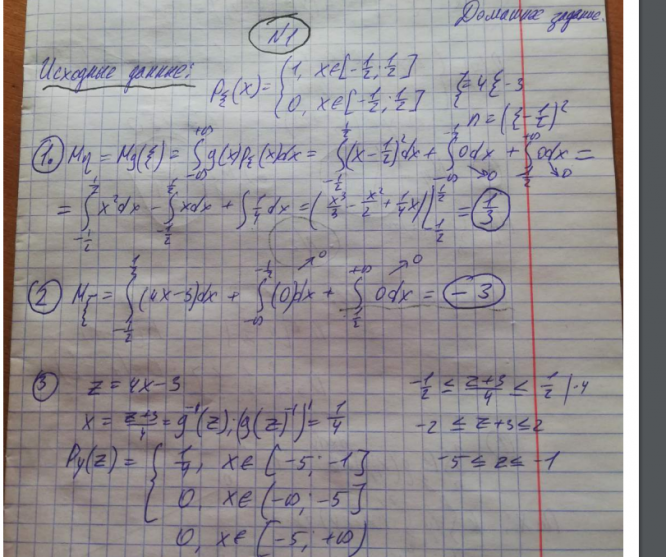 Домашнее задание.
N1
Исходные данные:
P_ξ(x) = { 1, x∈[-1/2; 1/2]
0, x∈[-1/2; 1/2]
ζ = 4ξ - 3
η = (ξ - 1/2)^2
1. Mη = Mg(ξ) = ∫_{-∞}^{+∞} g(x)P_ξ(x)dx = ∫_{-1/2}^{1/2} (x - 1/2)^2 dx + ∫_{-∞}^{-1/2} 0dx + ∫_{1/2}^{+∞} 0dx =
→0 →0
= ∫_{-1/2}^{1/2} x^2 dx - ∫_{-1/2}^{1/2} xdx + ∫ 1/4 dx = (x^3/3 - x^2/2 + 1/4 x) |_{-1/2}^{1/2} = 1/3
2 Mζ = ∫_{-1/2}^{1/2} (4x-3)dx + ∫_{-∞}^{-1/2} (0)dx + ∫_{-1/2}^{+∞} 0dx = -3
→0 →0
3 z = 4x-3
x = z+3/4 = g^{-1}(z); (g(z)^{-1})' = 1/4
P_y(z) = { 1/4, x∈[-5; -1]
0, x∈(-∞; -5]
0, x∈(-5; +∞)
-1/2 ≤ z+3/4 ≤ 1/2 |·4
-2 ≤ z+3 ≤ 2
-5 ≤ z ≤ -1